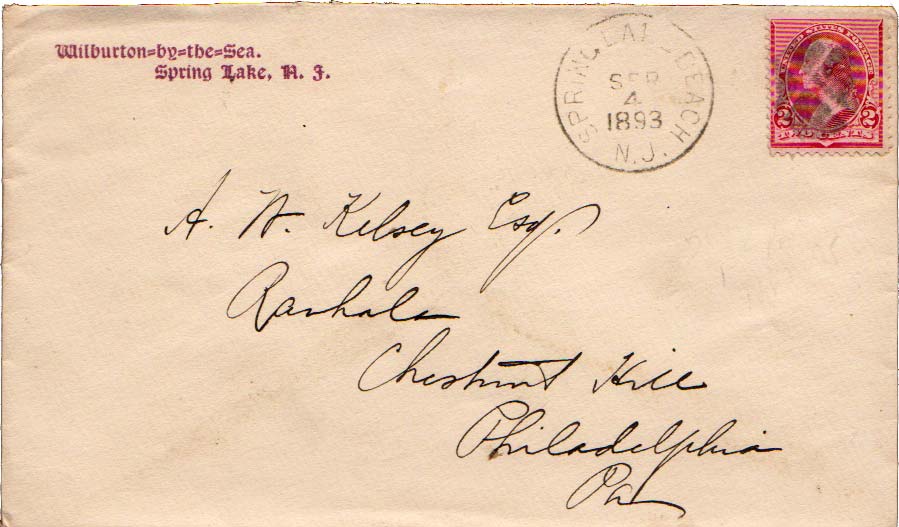 Wilburton=by=the=Sea.
Spring Lake, N. J.
SPRING LAKE BEACH
SEP
4
1893
N.J.
UNITED STATES POSTAGE
2 2
TWO CENTS
A. W. Kelsey Esq.
Chestnut Hill
Philadelphia
Pa